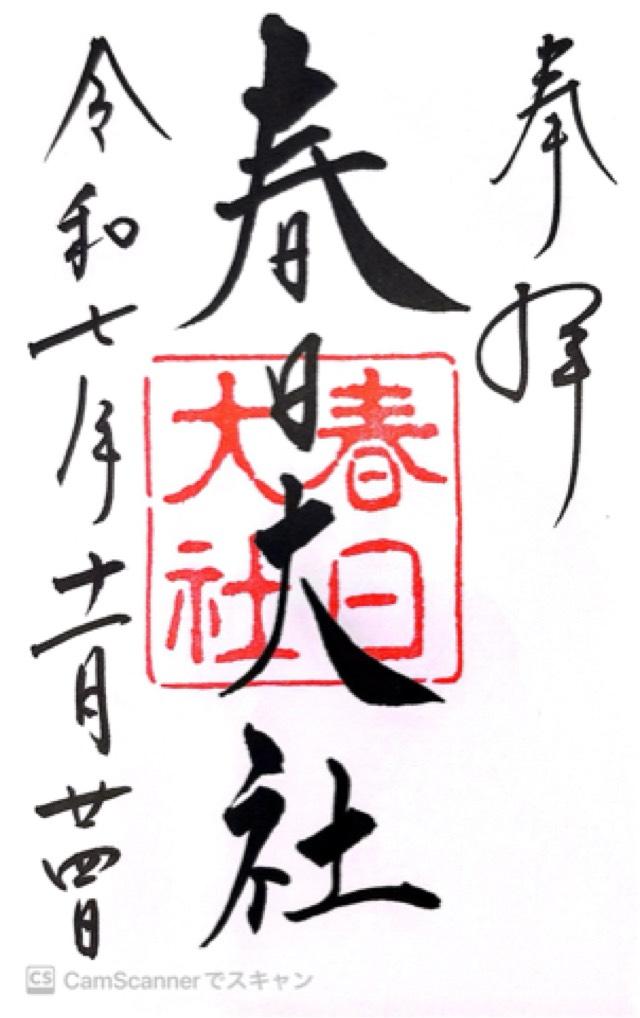 奉拝
春日大社
春日
大社
令和七年十一月廿四日
CS CamScannerでスキャン